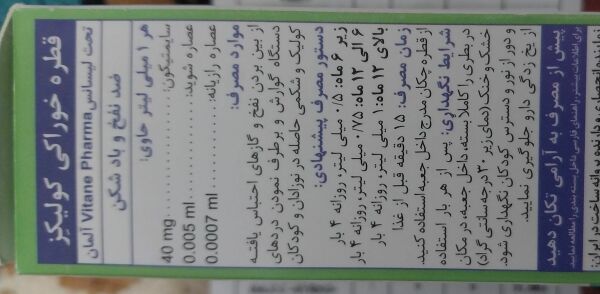 قطره خوراکی کولیکز
تحت لیسانس Vitane Pharma آلمان
ضد نفخ و باد شکن
هر ۱ میلی لیتر حاوی:
سایمتیکون: 40 mg
عصاره شوید: 0.005 ml
عصاره رازیانه: 0.0007 ml
موارد مصرف:
از بین بردن نفخ و گازهای احتباس یافته
دستگاه گوارش و برطرف نمودن دردهای
کولیک و شکمی حاصله در نوزادان و کودکان
دستور مصرف پیشنهادی:
زیر ۶ ماه: ۰/۵ میلی لیتر، روزانه ۴ بار
۶ الی ۱۲ ماه: ۰/۷۵ میلی لیتر، روزانه ۴ بار
بالای ۱۲ ماه: ۱ میلی لیتر، روزانه ۴ بار
زمان مصرف: ۱۵ دقیقه قبل از غذا
از قطره چکان مندرج داخل جعبه استفاده کنید.
شرایط نگهداری: پس از هر بار استفاده
در بطری را کاملا بسته، داخل جعبه، در مکان
خشک و خنک (دمای زیر ۳۰ درجه سانتی گراد)
و دور از نور و دسترس کودکان نگهداری شود.
از یخ زدگی دارو جلوگیری نمایید.
پیش از مصرف به آرامی تکان دهید
برای اطلاعات بیشتر، راهنمای فارسی داخل بسته بندی را مطالعه نمایید.